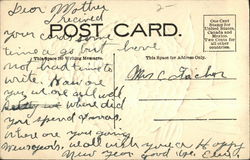 Dear Mother
I recived
your card some
POST CARD.
One Cent
Stamp for
United States,
Canada and
Mexico.
Two Cents for
all other
countries.
time a go but have
This Space for Writing Messages.
This Space for Address Only.
not had time to
write. How are
you we are all well
where did
you spend Xmas.
where are you going
Newyears. we all wish you a Happy
New Year good bye
Mrs C